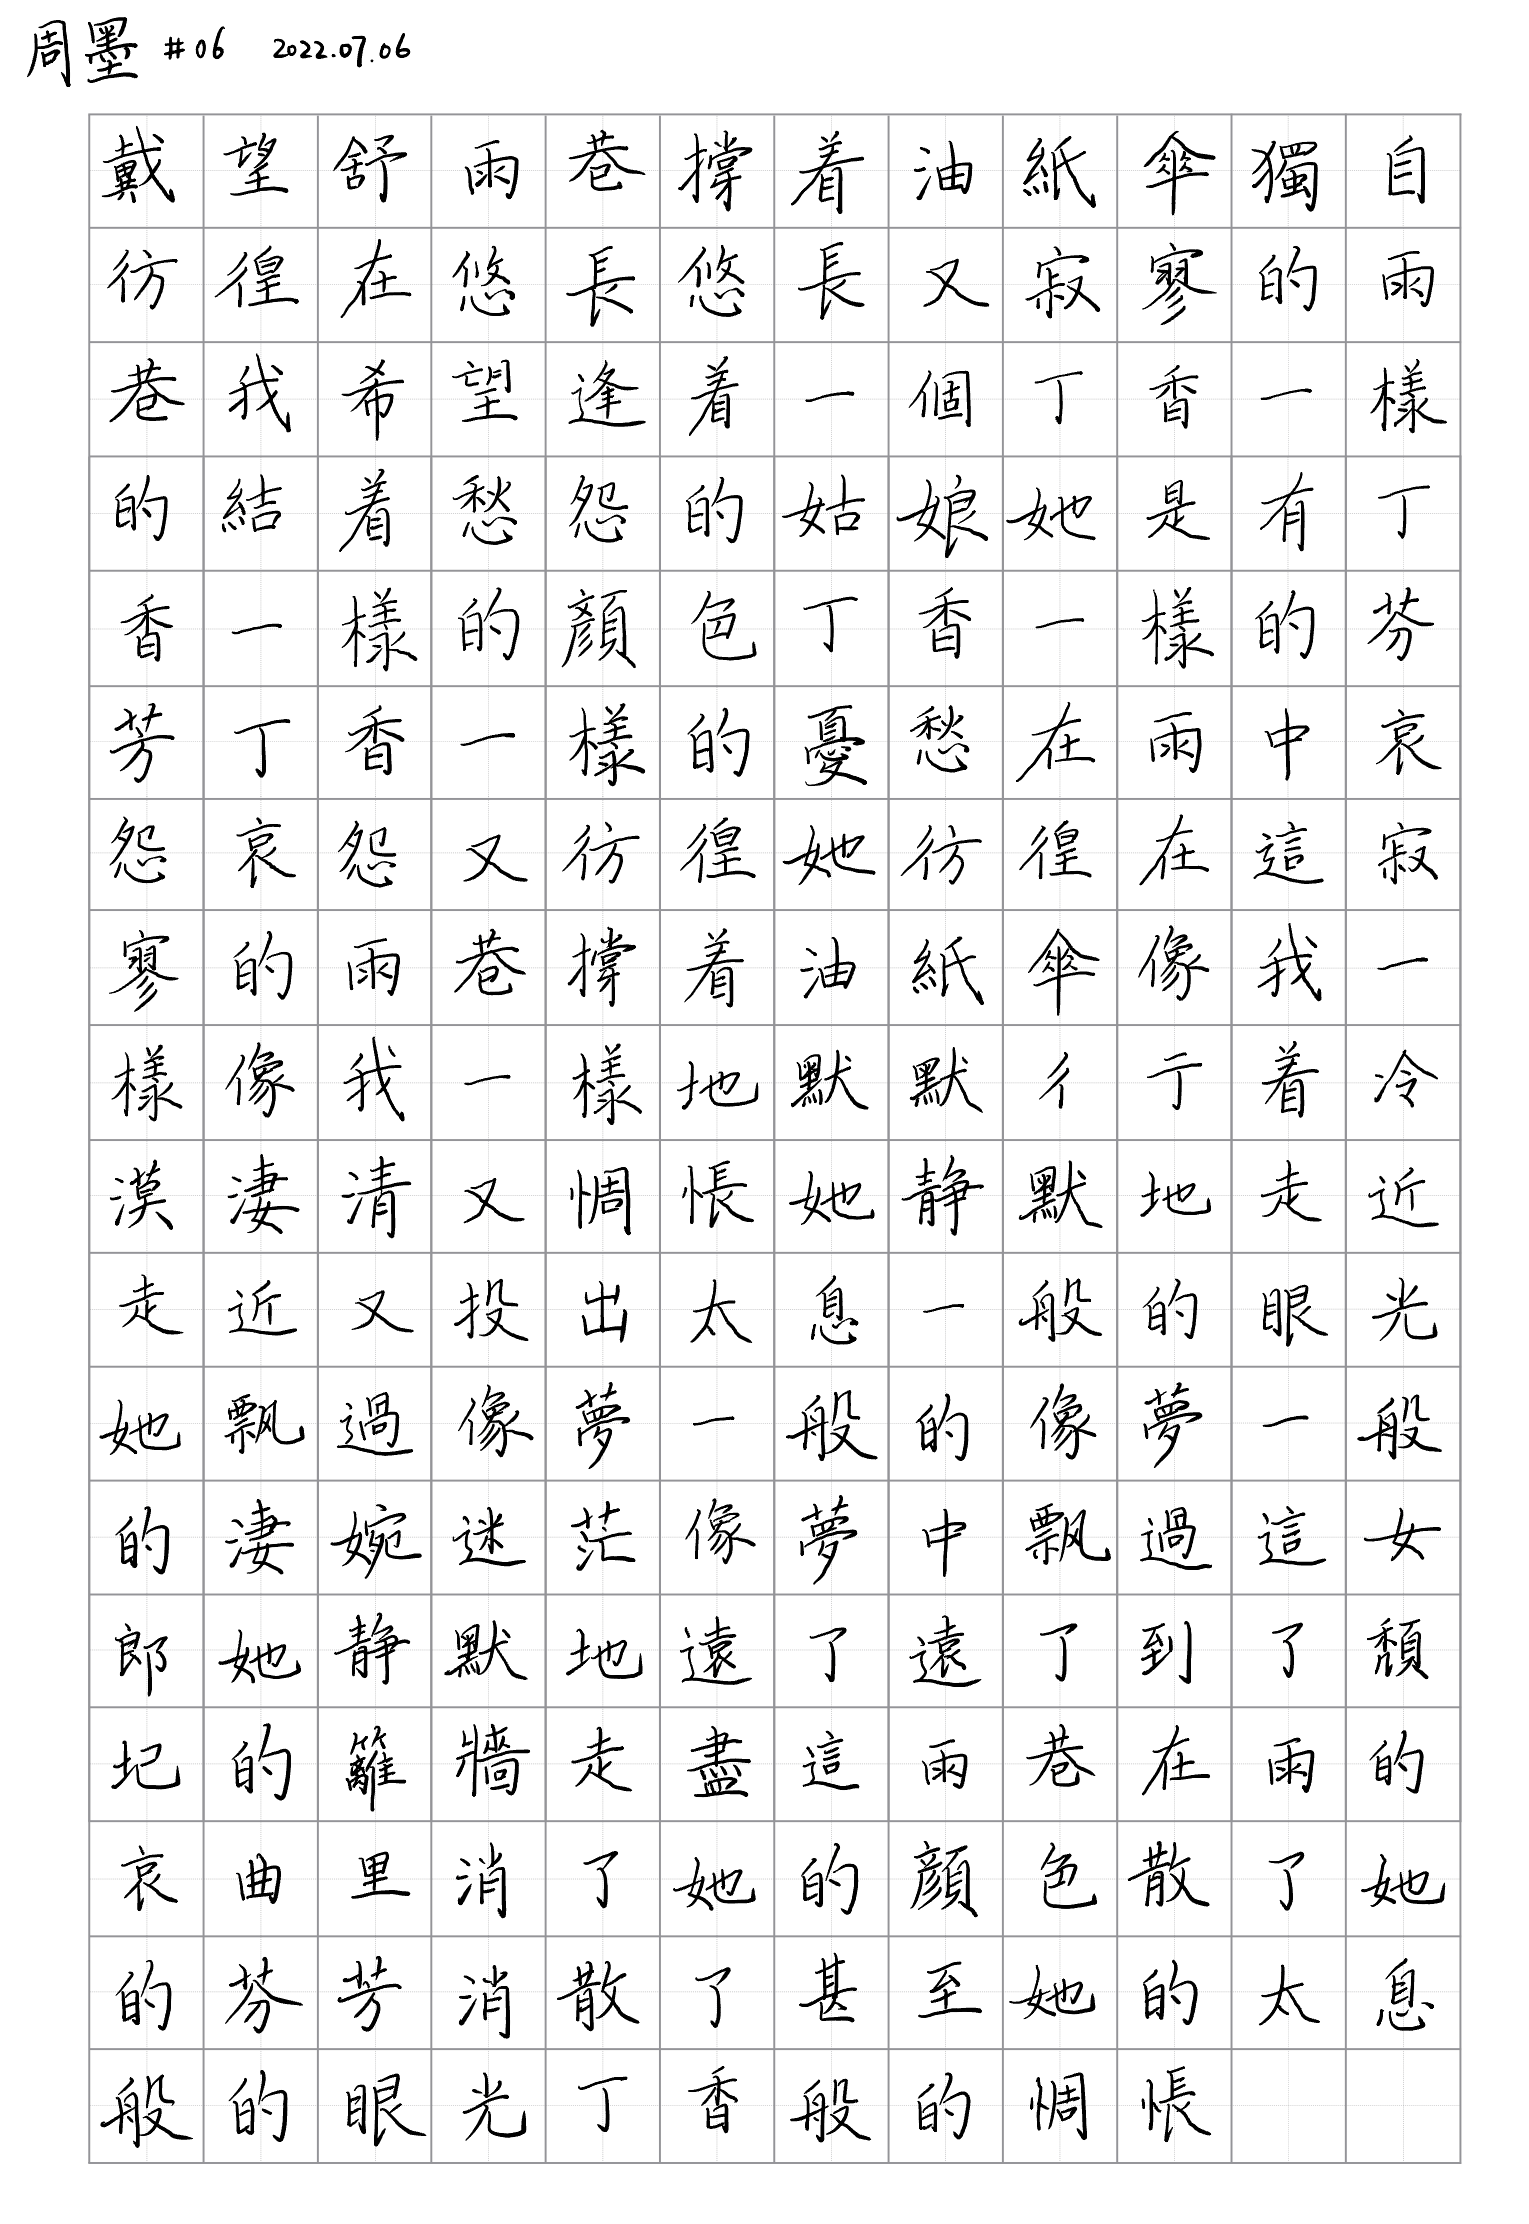 周墨 #06 2022.07.06
戴望舒雨巷撐着油紙傘獨自
彷徨在悠長悠長又寂寥的雨
巷我希望逢着一個丁香一樣
的結着愁怨的姑娘她是有丁
香一樣的顏色丁香一樣的芬
芳丁香一樣的憂愁在雨中哀
怨哀怨又彷徨她彷徨在這寂
寥的雨巷撐着油紙傘像我一
樣像我一樣地默默彳亍着冷
漠淒清又惆悵她静默地走近
走近又投出太息一般的眼光
她飄過像夢一般的像夢一般
的淒婉迷茫像夢中飄過這女
郎她静默地遠了遠了到了頹
圮的籬牆走盡這雨巷在雨的
哀曲里消了她的顏色散了她
的芬芳消散了甚至她的太息
般的眼光丁香般的惆悵